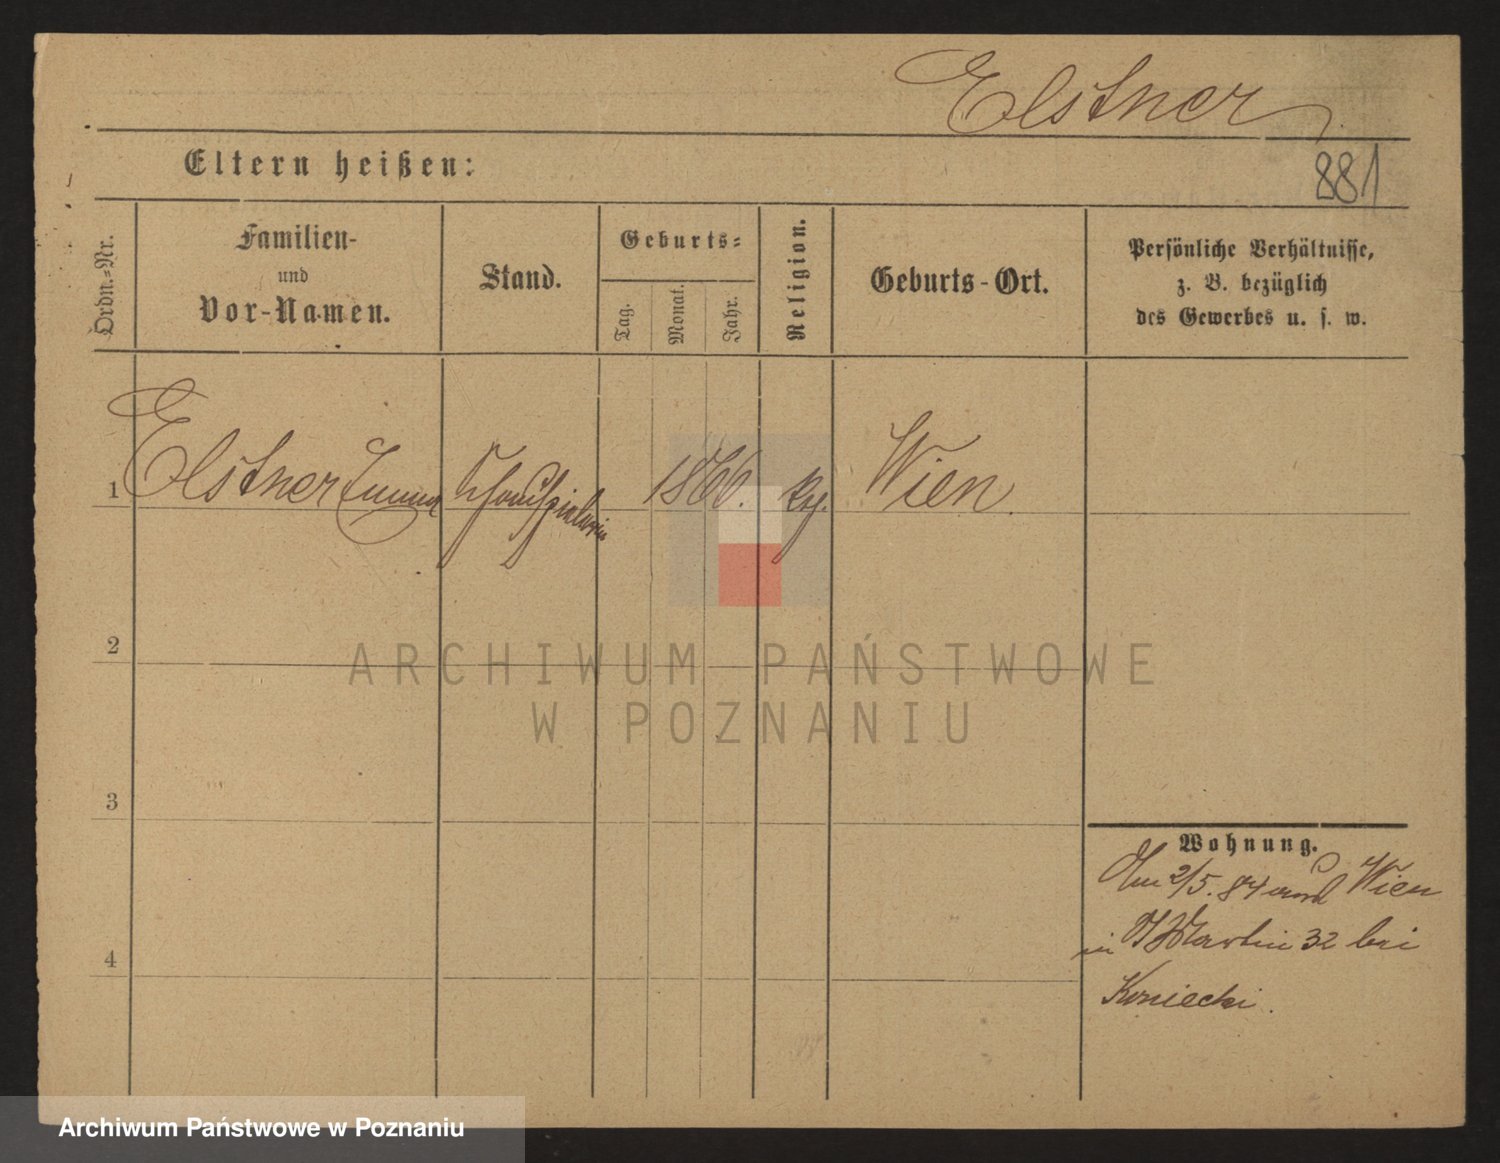 Elstner
Eltern heißen:
881
Ordn.-Nr.
Familien-
und
Vor-Namen.
Stand.
Geburts-
Tag.
Monat.
Jahr.
Religion.
Geburts-Ort.
Persönliche Verhältnisse,
z. B. bezüglich
des Gewerbes u. s. w.
1 Elstner Emma Schauspielerin 1860. Wien.
2
ARCHIWUM PAŃSTWOWE
W POZNANIU
3
Wohnung.
Am 2/5. 84 aus Wien
in St Martin 32 bei
4
Koniecki.
Archiwum Państwowe w Poznaniu